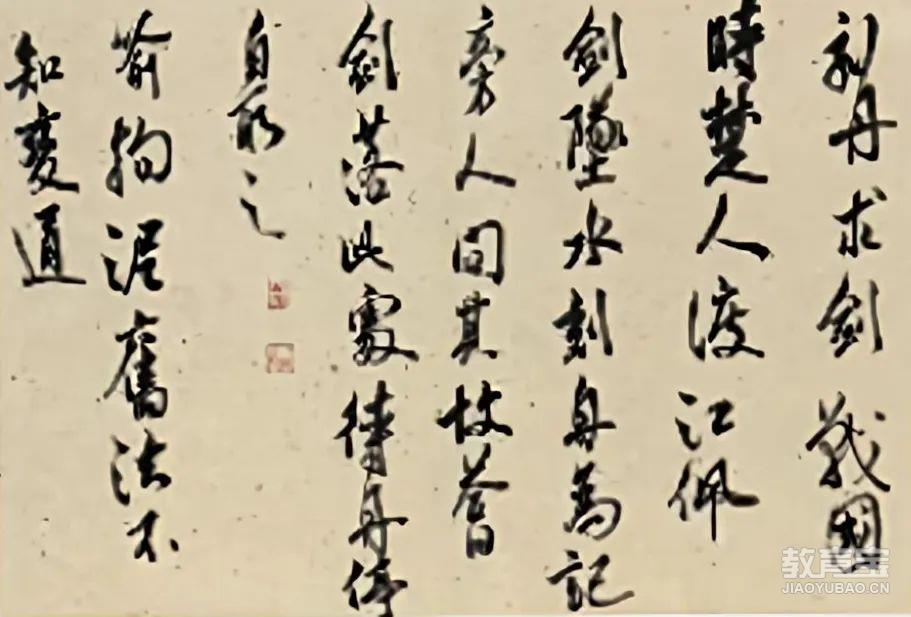 刻舟求劍戰國
時楚人渡江佩
劍墜水刻舟為記
旁人問其故答曰
劍落此處待舟停
自取之
喻拘泥舊法不
知變通
教育宝
JIAOYUBAO.CN